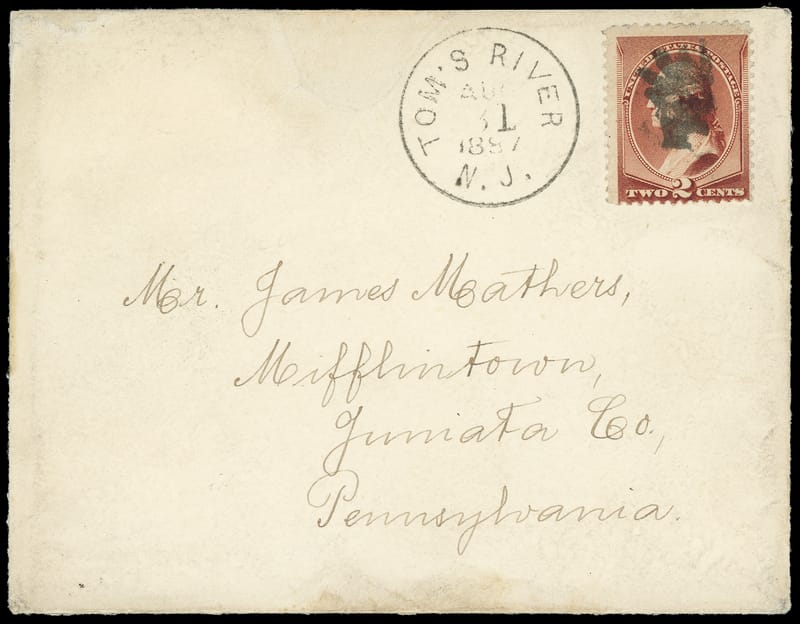 TOM'S RIVER
AUG
31
1887
N. J.
UNITED STATES POSTAGE
TWO 2 CENTS
Mr. James Mathers,
Mifflintown,
Juniata Co.,
Pennsylvania.